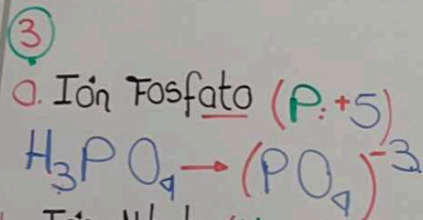 3
a. Ión Fosfato (P:+5)
H₃PO₄→(PO₄)⁻³